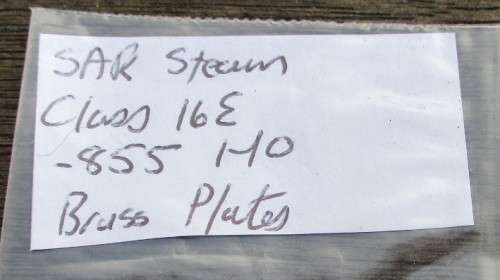 SAR Steam
Class 16E
-855 HO
Brass Plates